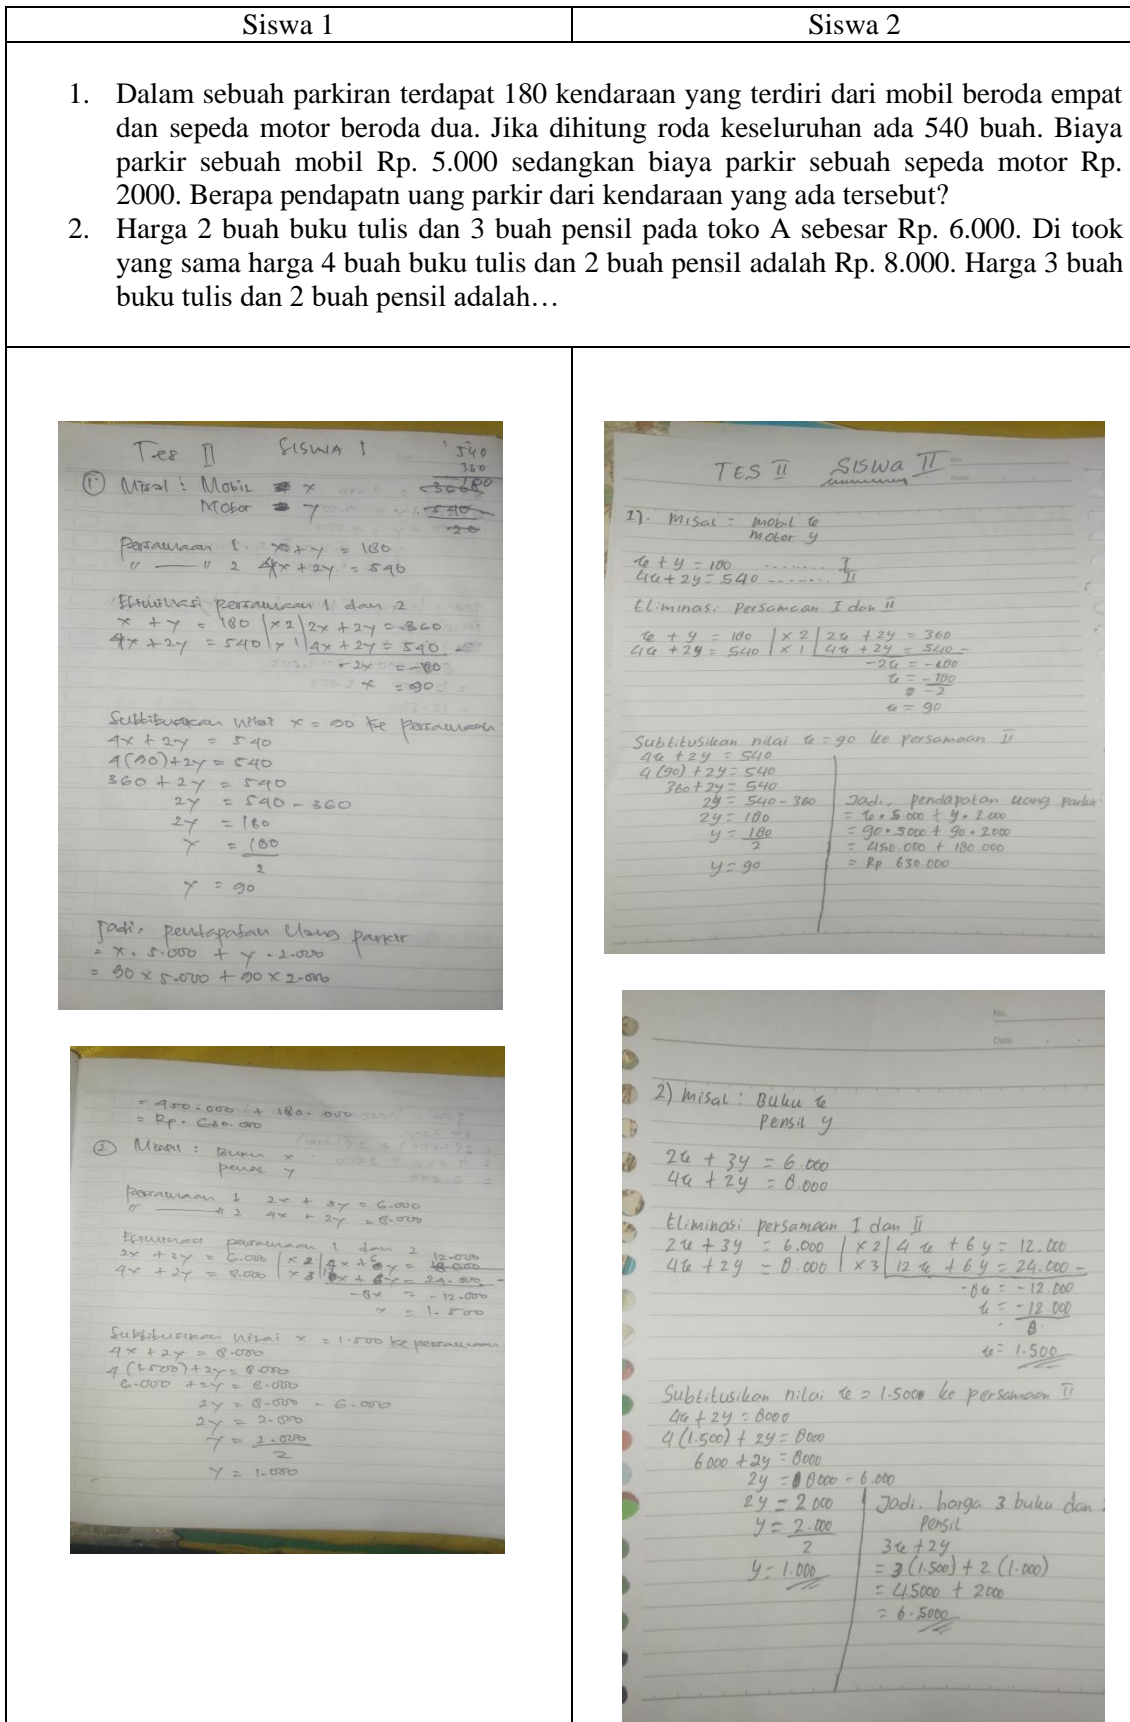 Siswa 1
Siswa 2
1. Dalam sebuah parkiran terdapat 180 kendaraan yang terdiri dari mobil beroda empat
dan sepeda motor beroda dua. Jika dihitung roda keseluruhan ada 540 buah. Biaya
parkir sebuah mobil Rp. 5.000 sedangkan biaya parkir sebuah sepeda motor Rp.
2000. Berapa pendapatn uang parkir dari kendaraan yang ada tersebut?
2. Harga 2 buah buku tulis dan 3 buah pensil pada toko A sebesar Rp. 6.000. Di took
yang sama harga 4 buah buku tulis dan 2 buah pensil adalah Rp. 8.000. Harga 3 buah
buku tulis dan 2 buah pensil adalah…
Tes II SISWA I
540
360
180
① Misal : Mobil = x
Motor = y
Persamaan 1. x + y = 180
" — " 2 4x + 2y = 540
Eliminasi persamaan 1 dan 2
x + y = 180 | x 2 | 2x + 2y = 360
4x + 2y = 540 | x 1 | 4x + 2y = 540 -
-2x = -180
x = 90
Subtitusikan nilai x = 90 ke persamaan
4x + 2y = 540
4(90) + 2y = 540
360 + 2y = 540
2y = 540 - 360
2y = 180
y = 180
2
y = 90
Jadi, pendapatan Uang parkir
= x . 5.000 + y . 2.000
= 90 x 5.000 + 90 x 2.000
= 450.000 + 180.000
= Rp. 630.000
② Misal : Buku x
pensil y
persamaan 1 2x + 3y = 6.000
" — " 2 4x + 2y = 8.000
Eliminasi persamaan 1 dan 2
2x + 3y = 6.000 | x 2 | 4x + 6y = 12.000
4x + 2y = 8.000 | x 3 | 12x + 6y = 24.000 -
-8x = -12.000
x = 1.500
Subtitusikan nilai x = 1.500 ke persamaan
4x + 2y = 8.000
4(1.500) + 2y = 8.000
6.000 + 2y = 8.000
2y = 8.000 - 6.000
2y = 2.000
y = 2.000
2
y = 1.000
TES II SISWA II
No.
Date
1). Misal = mobil x
motor y
x + y = 180 ........ I
4x + 2y = 540 ....... II
Eliminasi Persamaan I dan II
x + y = 180 | x 2 | 2x + 2y = 360
4x + 2y = 540 | x 1 | 4x + 2y = 540 -
-2x = -180
x = -180
-2
x = 90
Subtitusikan nilai x = 90 ke persamaan II
4x + 2y = 540
4(90) + 2y = 540
360 + 2y = 540
2y = 540 - 360
2y = 180
y = 180
2
y = 90
Jadi, pendapatan uang parkir
= x . 5.000 + y . 2.000
= 90 . 5000 + 90 . 2000
= 450.000 + 180.000
= Rp 630.000
No.
Date
2) Misal : Buku x
Pensil y
2x + 3y = 6.000
4x + 2y = 8.000
Eliminasi persamaan I dan II
2x + 3y = 6.000 | x 2 | 4x + 6y = 12.000
4x + 2y = 8.000 | x 3 | 12x + 6y = 24.000 -
-8x = -12.000
x = -12.000
8
x = 1.500
Subtitusikan nilai x = 1.500 ke persamaan II
4x + 2y = 8000
4(1.500) + 2y = 8000
6000 + 2y = 8000
2y = 8000 - 6.000
2y = 2000
y = 2.000
2
y = 1.000
Jadi, harga 3 buku dan 2
Pensil
3x + 2y
= 3(1.500) + 2(1.000)
= 45000 + 2000
= 6.5000